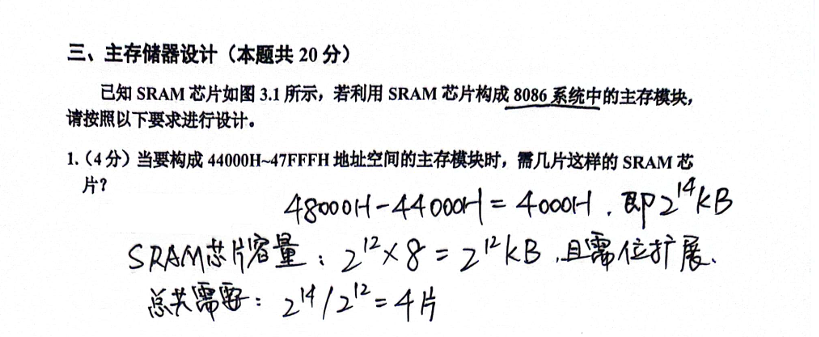 三、主存储器设计（本题共 20 分）
已知 SRAM 芯片如图 3.1 所示，若利用 SRAM 芯片构成 8086 系统中的主存模块，
请按照以下要求进行设计。
1.（4 分）当要构成 44000H~47FFFH 地址空间的主存模块时，需几片这样的 SRAM 芯
片？
48000H-44000H=4000H，即2^14KB
SRAM芯片容量：2^12×8=2^12KB，且需位扩展、
总共需要：2^14/2^12=4片